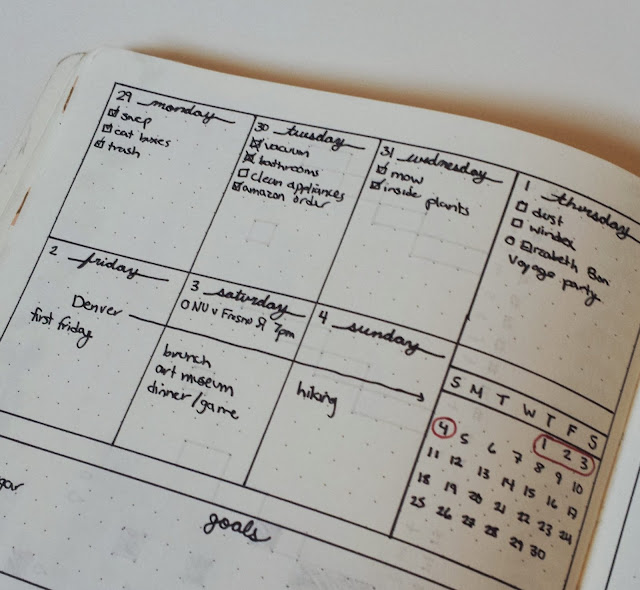 29 monday
cat boxes
trash
30 tuesday
vacuum
bathrooms
clean appliances
amazon order
31 wednesday
mow
inside plants
1 thursday
dust
windex
Elizabeth Bon
Voyage party
2 friday
Denver
first friday
3 saturday
NU v Fresno St 7pm
brunch
art museum
dinner/game
4 sunday
hiking
S M T W T F S
1 2 3
4 5 6 7 8 9 10
11 12 13 14 15 16 17
18 19 20 21 22 23 24
25 26 27 28 29 30
goals